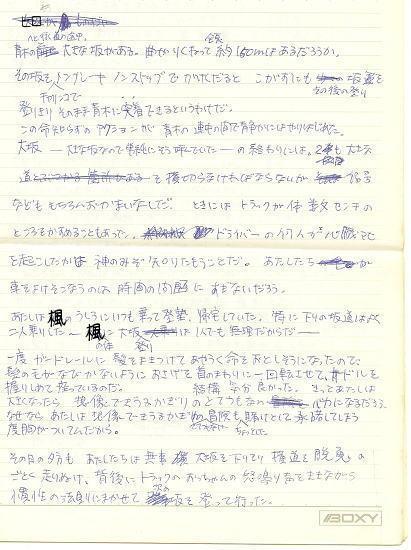 大きな坂がある。曲がりくねって 全長 約150mはあるだろうか。
その坂を ノンストップで かけおりると こがずにも 坂道を
その後の登り
チャリンコで
登りきり そのまま青木に できるというわけだ。
この命知らずの アクションが 青木の連中の間で静かにはやりはじめた。
大坂 ― 大きな坂なので単純にそう呼んでいた ― の終わりには。 大きな
を横切らなければならないが 信号
なども もちろんおかまいなしだ。 ときには トラックが 体 数センチの
ところをかすめることもあった。 ドライバーの何人が 心臓マヒ
を起こしたかは 神のみぞ知りたもうことだ。 あたしたち が
車をよけそこなうのは 時間の問題に すぎないだろう。
あたしは 楓のうしろにいつも乗って登校、帰宅していた。特に下りの坂道はよく
二人乗りした ― 楓 大坂 登り は1人でも無理だからだ ―
一度 ガードレールに 髪をまきつけて あやうく命を落としそうになったので、
髪の毛がなびかないように おさげを 首のまわりに 一回転させて、
握りしめて 乗っているのだ。 結構 気分 良かった。 きっとあたしは
大きくなったら 想像できうるかぎり のとてつもない バカになるだろう。
なぜなら あたしは 想像できうるかぎりの冒険も賭けとして承諾してしまう
度胸がついてんだから。
その日の夕方も あたしたちは 無事 大坂を下りきり 横道を 脱兎の
ごとく 走りぬけ、背後に トラックのおっちゃんの 怒鳴り声をききながら
慣性の法則にまかせて 坂を 登って行った。
BOXY